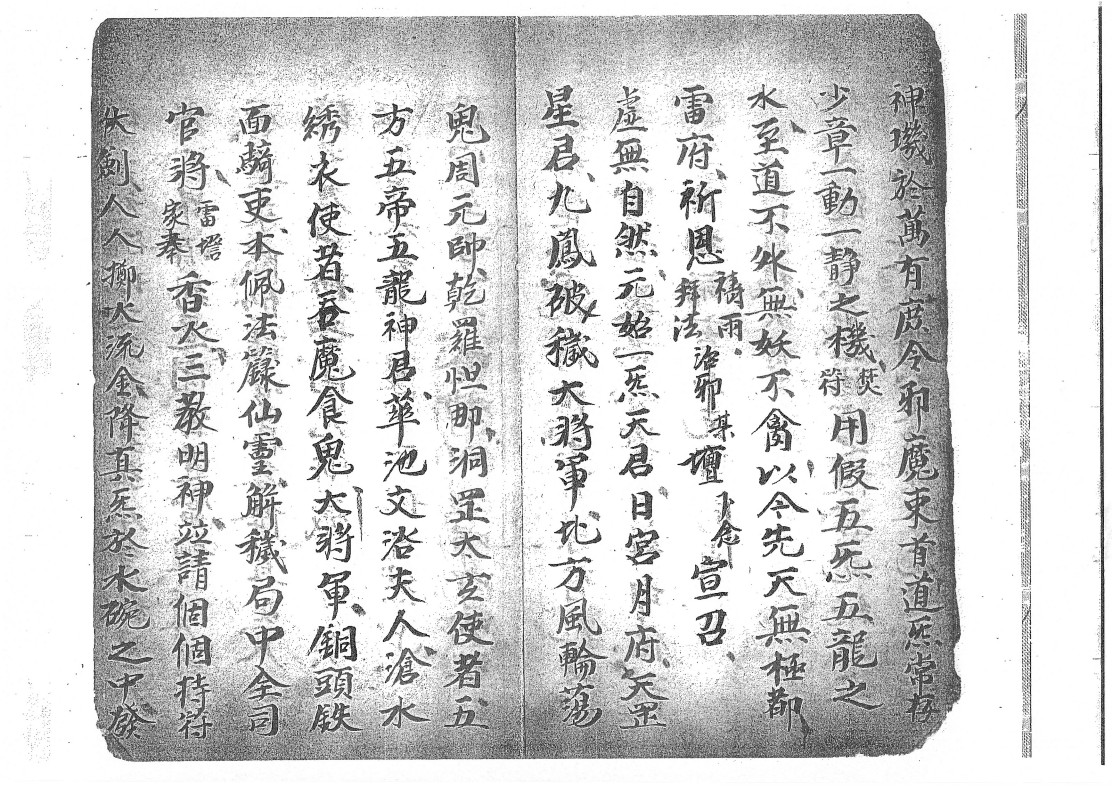 神璣於萬有庶令邪魔束首道炁常存
少章一動一静之機焚符用假五炁五龍之
水至道不外無妖不禽以今先天無極都
雷府祈恩禱雨拜法治邪某壇卜念宣召
虛無自然元始一炁天君日宮月府天罡
星君九鳳破穢大將軍北方風輪蕩
鬼周元帥乾羅怛那洞罡太玄使者五
方五帝五龍神君華池文浴夫人滄水
綉衣使者吞魔食鬼大將軍銅頭鉄
面騎吏本佩法籙仙靈解穢局中全司
官將雷壇家奉香火三教明神竝請個個持符
伏劍人人擲火流金降真炁於水碗之中發